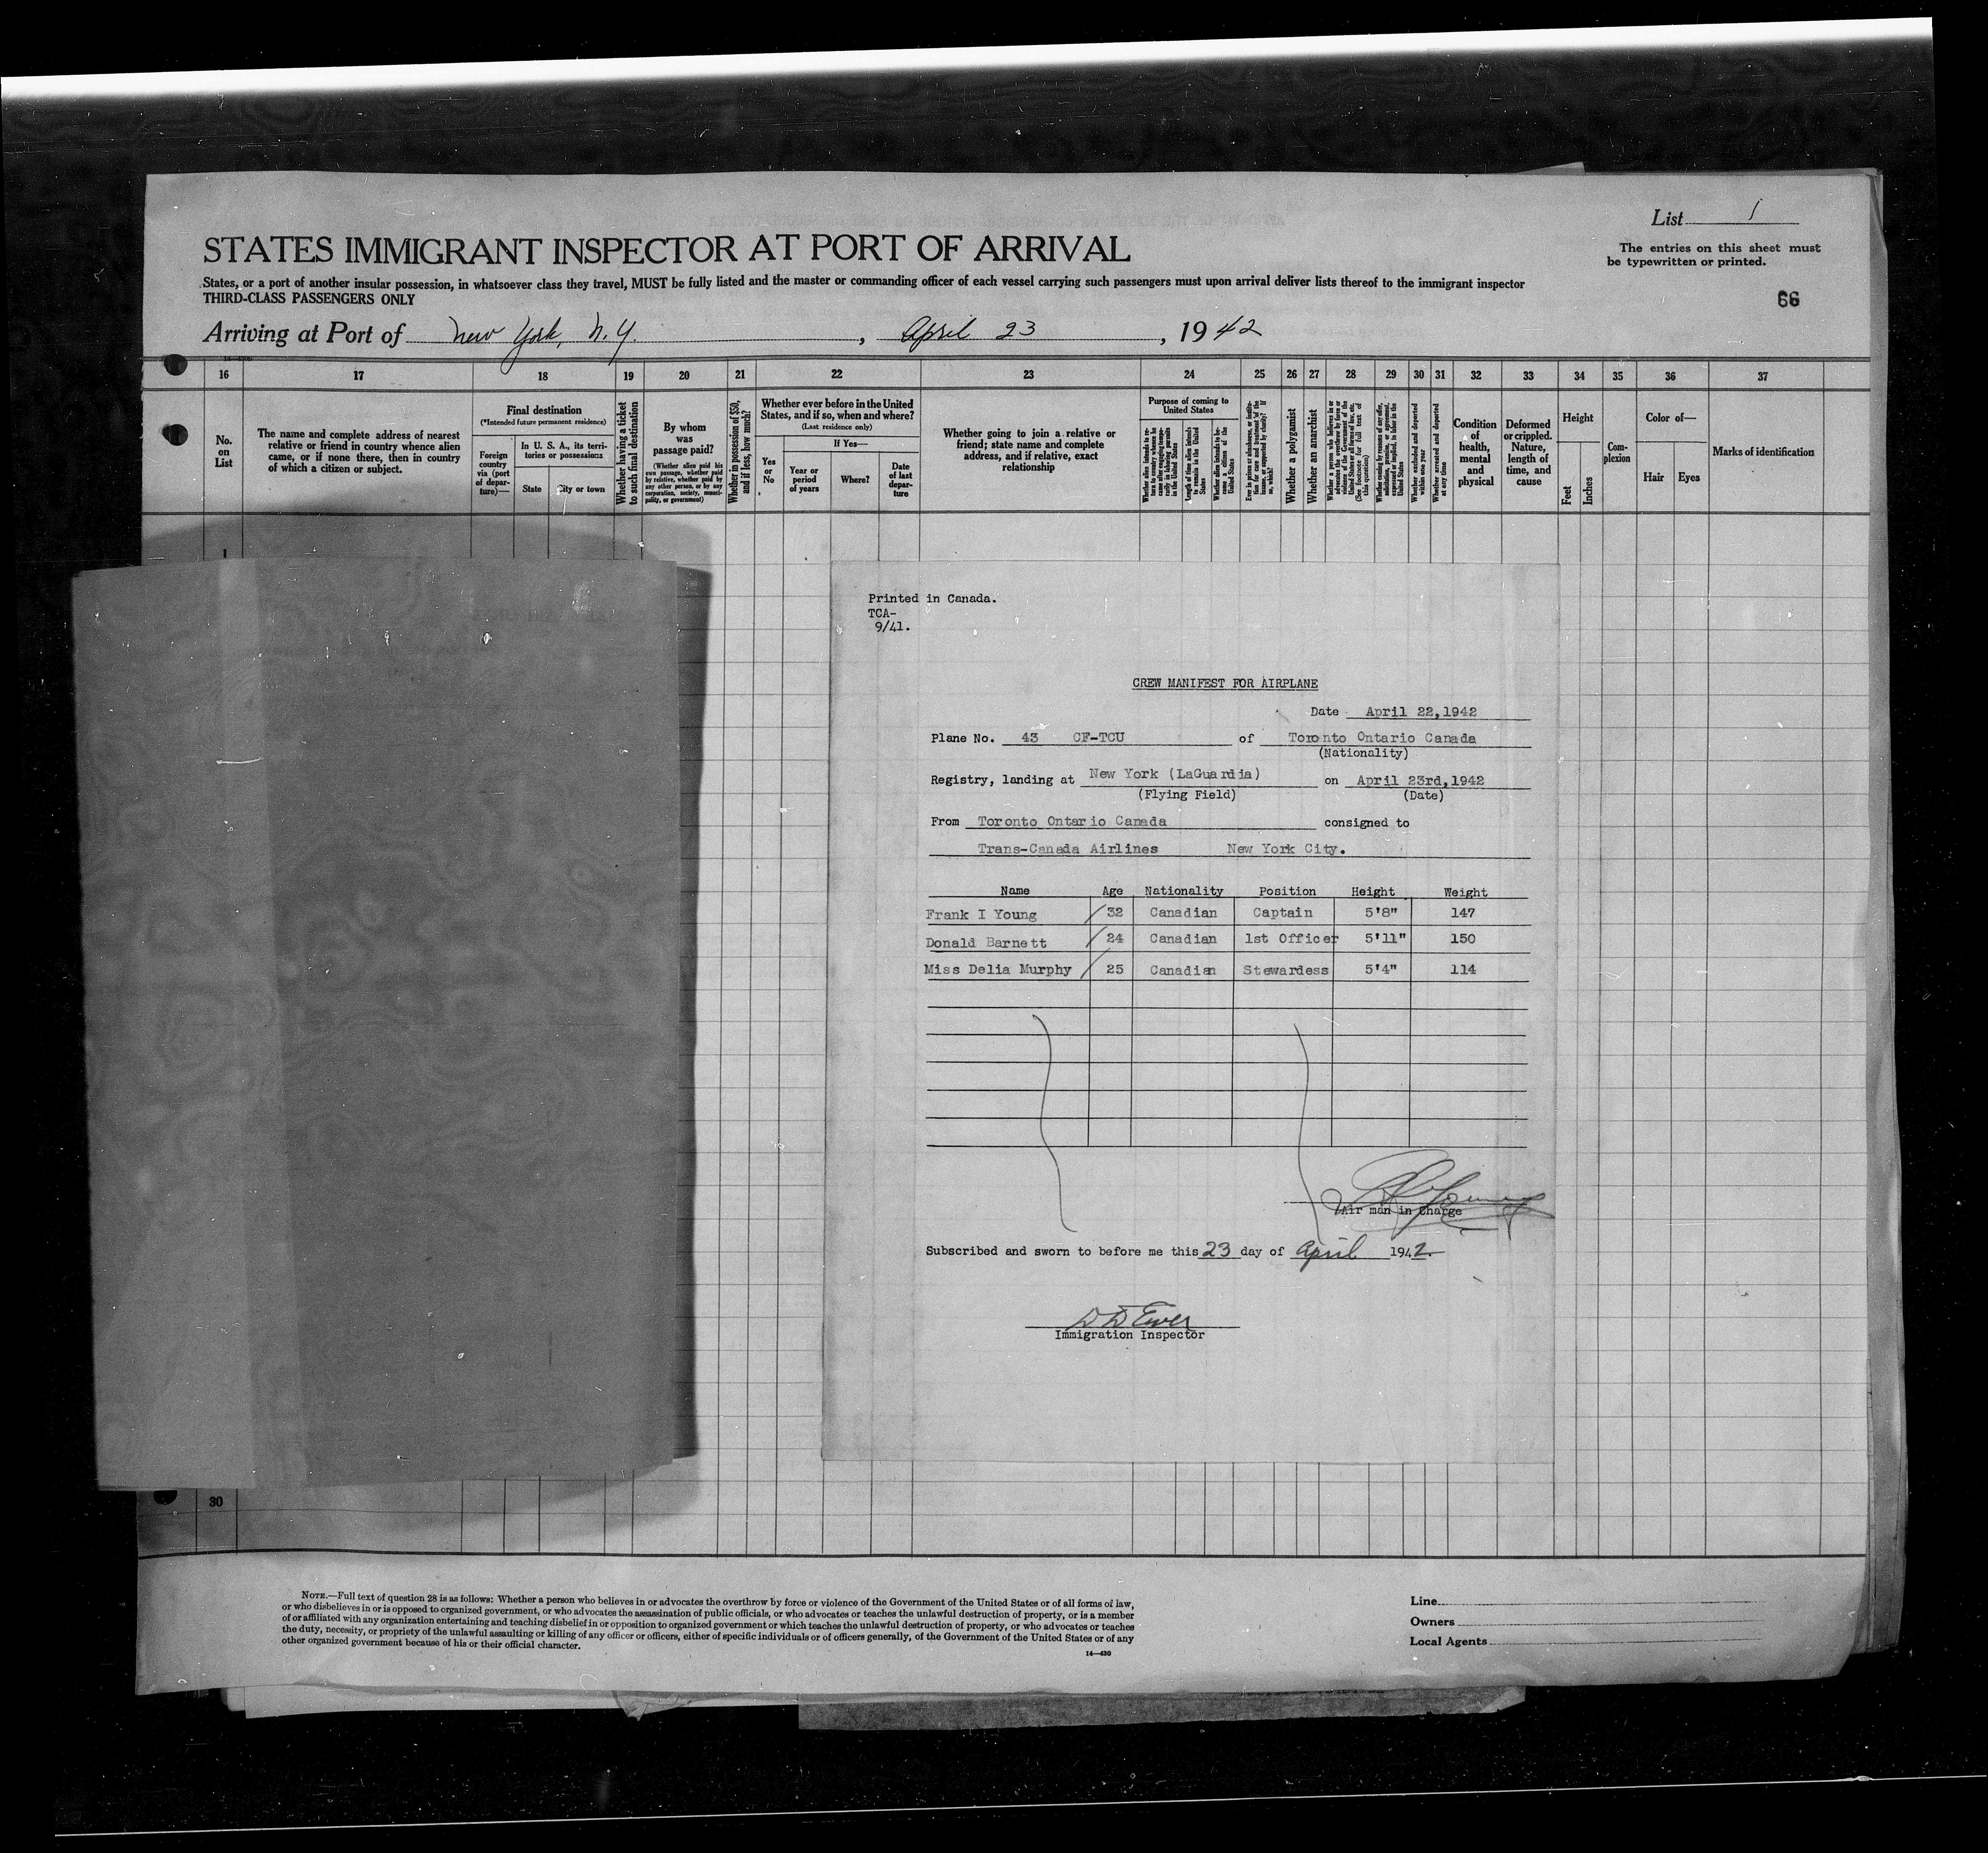 List 1
The entries on this sheet must
be typewritten or printed.
66
STATES IMMIGRANT INSPECTOR AT PORT OF ARRIVAL
States, or a port of another insular possession, in whatsoever class they travel, MUST be fully listed and the master or commanding officer of each vessel carrying such passengers must upon arrival deliver lists thereof to the immigrant inspector
THIRD-CLASS PASSENGERS ONLY
Arriving at Port of New York, N.Y. , April 23 , 1942
16 17 18 19 20 21 22 23 24 25 26 27 28 29 30 31 32 33 34 35 36 37
No.
on
List
The name and complete address of nearest
relative or friend in country whence alien
came, or if none there, then in country
of which a citizen or subject.
Final destination
(*Intended future permanent residence)
Foreign
country
via (port
of depar-
ture)—
In U. S. A., its terri-
tories or possessions
State
City or town
Whether having a ticket
to such final destination
By whom
was
passage paid?
(Whether alien paid his
own passage, whether paid
by relative, whether paid by
any other person, or by any
corporation, society, munici-
pality, or government)
Whether in possession of $50,
and if less, how much?
Whether ever before in the United
States, and if so, when and where?
(Last residence only)
Yes
or
No
If Yes—
Year or
period
of years
Where?
Date
of last
depar-
ture
Whether going to join a relative or
friend; state name and complete
address, and if relative, exact
relationship
Purpose of coming to
United States
Length of time alien intends
to remain in the United
States
Whether alien intends to be-
come a citizen of the
United States
Whether a polygamist
Whether an anarchist
(See footnote for full text of
this question)
Whether excluded and deported
within one year
Whether arrested and deported
at any time
Condition
of
health,
mental
and
physical
Deformed
or crippled.
Nature,
length of
time, and
cause
Height
Feet
Inches
Com-
plexion
Color of—
Hair
Eyes
Marks of identification
1
Printed in Canada.
TCA-
9/41.
CREW MANIFEST FOR AIRPLANE
Date April 22,1942
Plane No. 43 CF-TCU of Toronto Ontario Canada
(Nationality)
Registry, landing at New York (LaGuardia) on April 23rd,1942
(Flying Field) (Date)
From Toronto Ontario Canada consigned to
Trans-Canada Airlines New York City.
Name Age Nationality Position Height Weight
Frank I Young 32 Canadian Captain 5'8" 147
Donald Barnett 24 Canadian 1st Officer 5'11" 150
Miss Delia Murphy 25 Canadian Stewardess 5'4" 114
Air man in Charge
Subscribed and sworn to before me this 23 day of April 1942
D D Ewer
Immigration Inspector
30
NOTE.—Full text of question 28 is as follows: Whether a person who believes in or advocates the overthrow by force or violence of the Government of the United States or of all forms of law,
or who disbelieves in or is opposed to organized government, or who advocates the assassination of public officials, or who advocates or teaches the unlawful destruction of property, or is a member
of or affiliated with any organization entertaining and teaching disbelief in or opposition to organized government or which teaches the unlawful destruction of property, or who advocates or teaches
the duty, necessity, or propriety of the unlawful assaulting or killing of any officer or officers, either of specific individuals or of officers generally, of the Government of the United States or of any
other organized government because of his or their official character.
14—430
Line
Owners
Local Agents